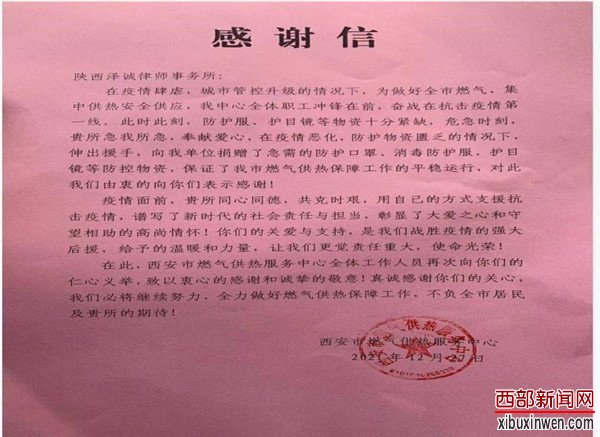 感谢信
陕西泽诚律师事务所：
在疫情肆虐，城市管控升级的情况下，为做好全市燃气、集
中供热安全供应，我中心全体职工冲锋在前，奋战在抗击疫情第
一线。此时此刻，防护服、护目镜等物资十分紧缺，危急时刻，
贵所急我所急，奉献爱心，在疫情恶化，防护物资匮乏的情况下，
伸出援手，向我单位捐赠了急需的防护口罩、消毒防护服、护目
镜等防控物资，保证了我市燃气供热保障工作的平稳运行，对此
我们由衷的向你们表示感谢！
疫情面前，贵所同心同德，共克时艰，用自己的方式支援抗
击疫情，谱写了新时代的社会责任与担当，彰显了大爱之心和守
望相助的高尚情怀！你们的关爱与支持，是我们战胜疫情的强大
后援，给予的温暖和力量，让我们更觉责任重大，使命光荣！
在此，西安市燃气供热服务中心全体工作人员再次向你们的
仁心义举，致以衷心的感谢和诚挚的敬意！真诚感谢你们的关心，
我们必将继续努力，全力做好燃气供热保障工作，不负全市居民
及贵所的期待！
西安市燃气供热服务中心
2021年12月27日
西部新闻网
xibuxinwen.com